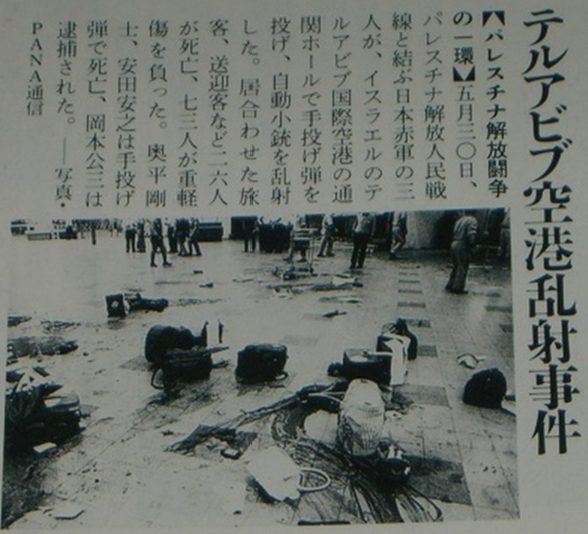 テルアビブ空港乱射事件
【パレスチナ解放闘争
の一環】五月三〇日、
パレスチナ解放人民戦
線と結ぶ日本赤軍の三
人が、イスラエルのテ
ルアビブ国際空港の通
関ホールで手投げ弾を
投げ、自動小銃を乱射
した。居合わせた旅
客、送迎客など二六人
が死亡、七三人が重軽
傷を負った。奥平剛
士、安田安之は手投げ
弾で死亡、岡本公三は
逮捕された。――写真・
PANA通信